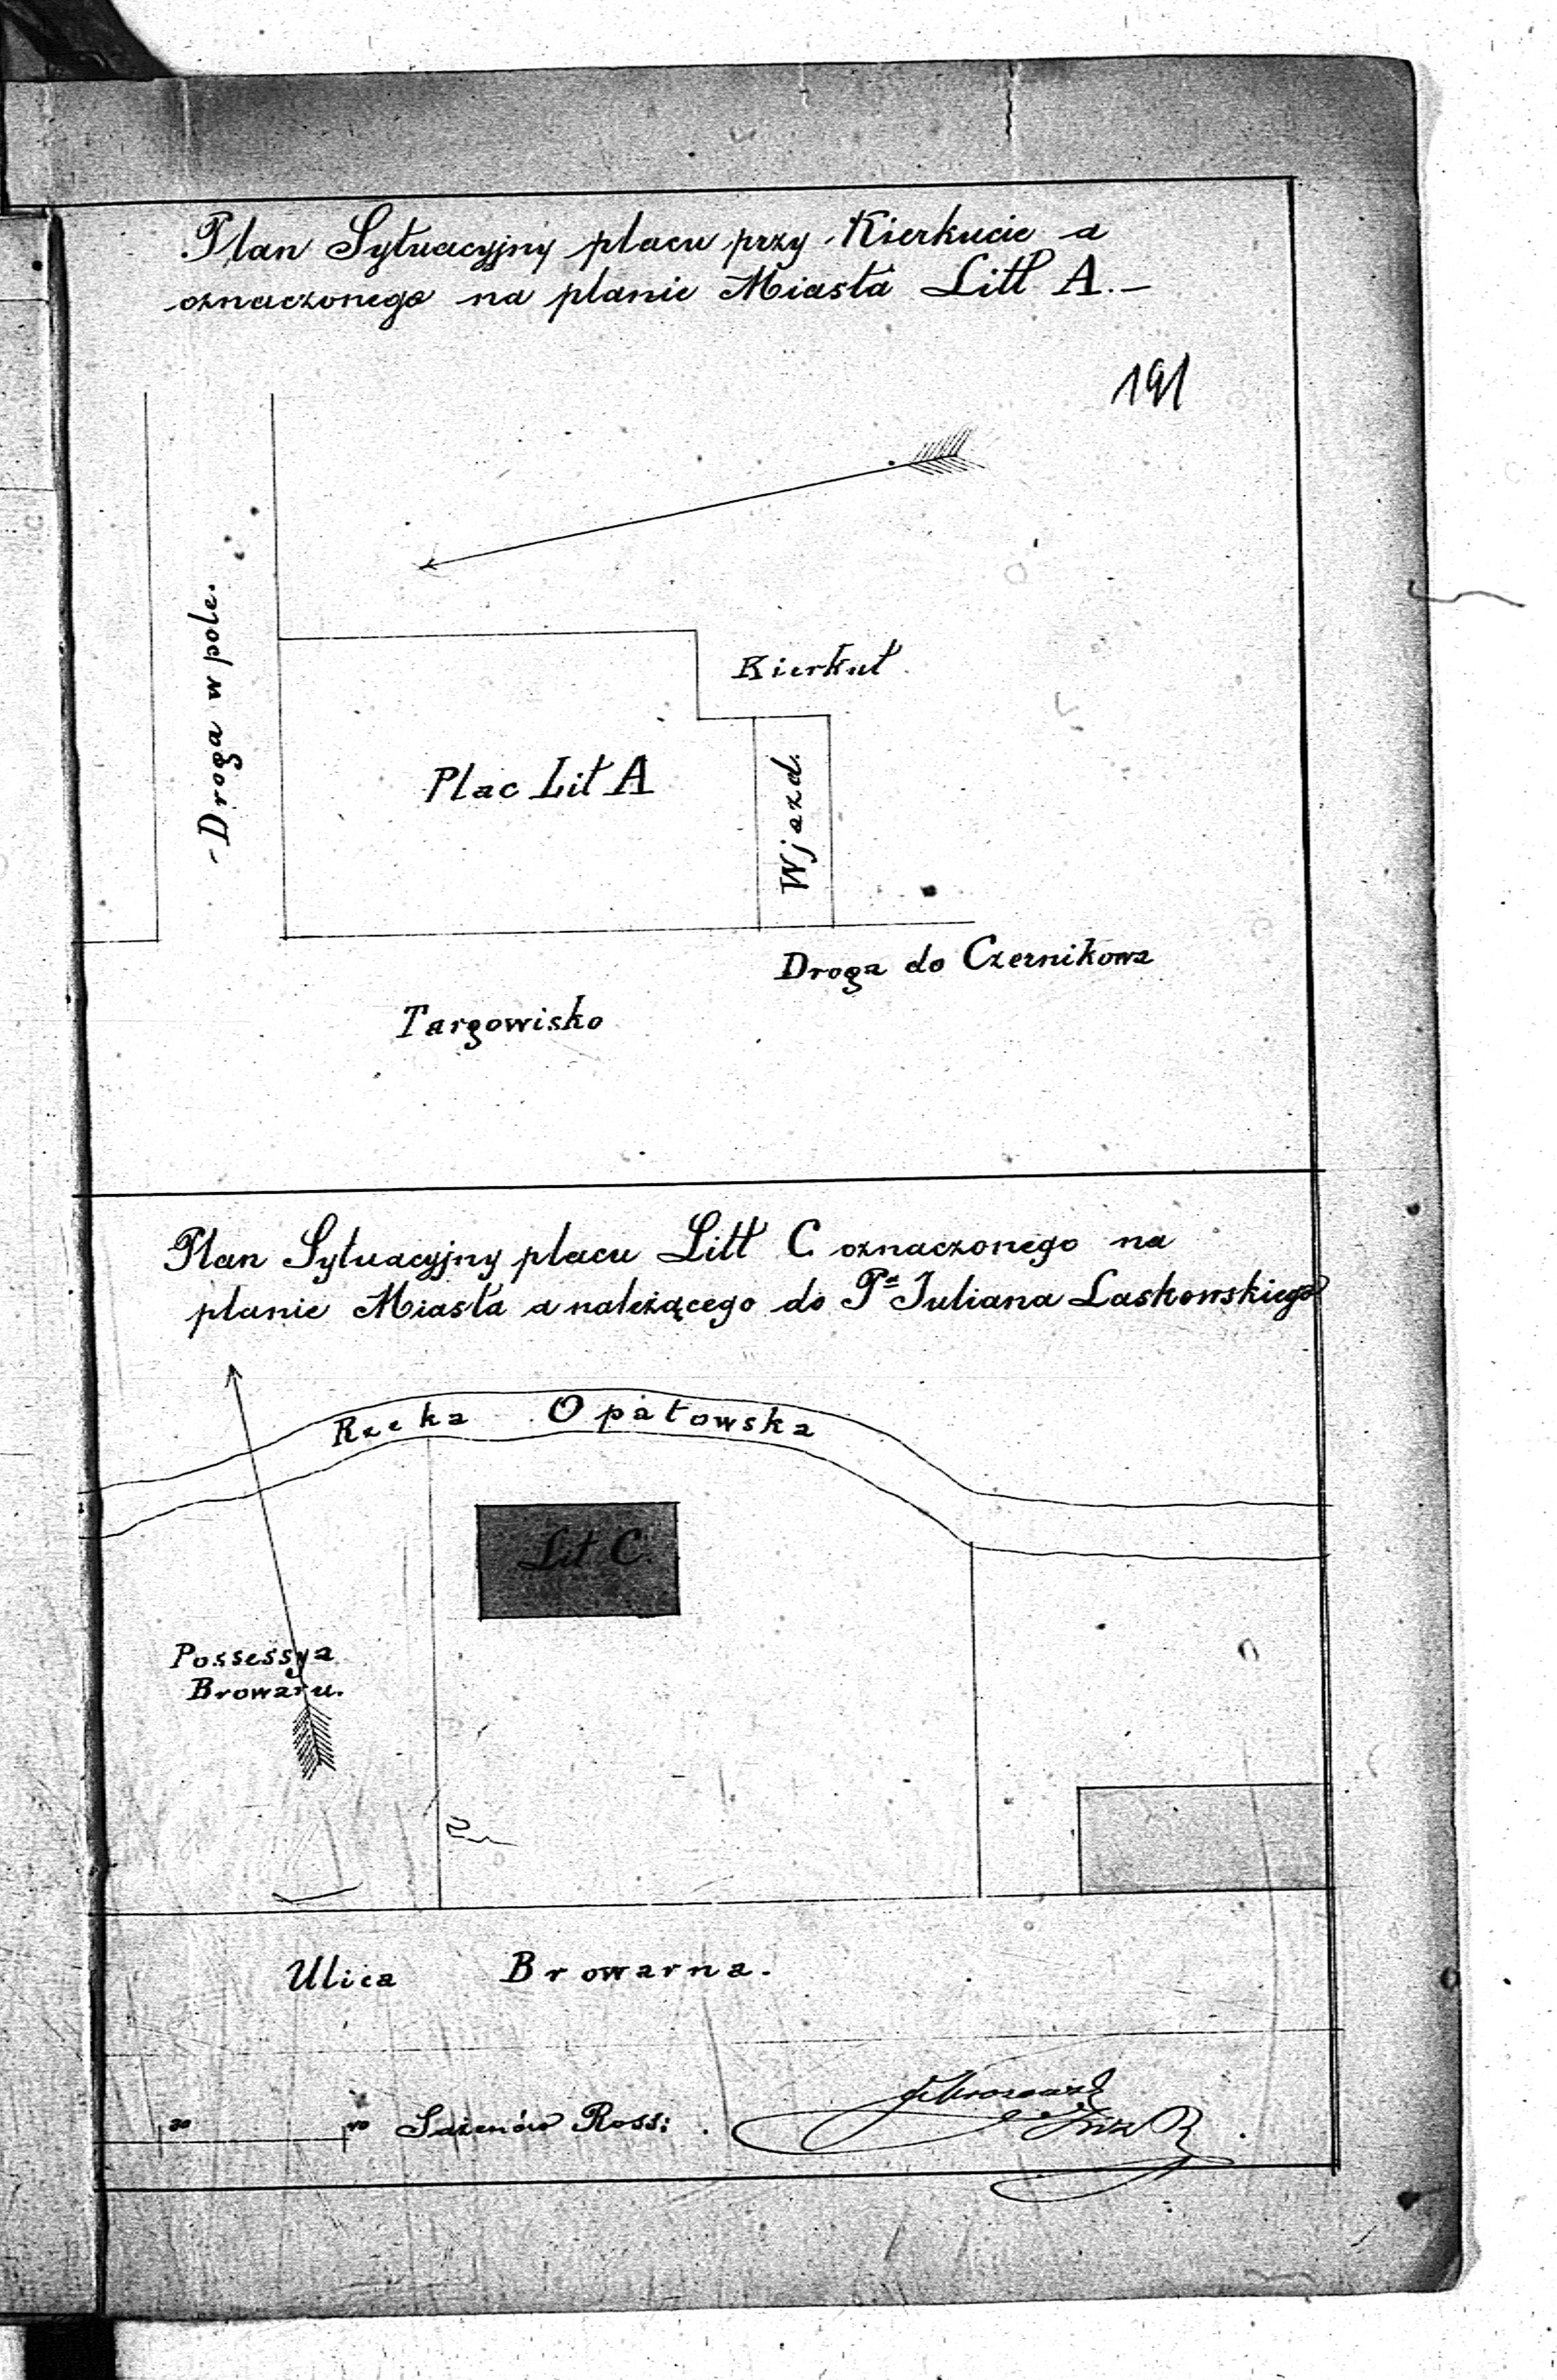 Plan Sytuacyjny placu przy Kierkucie a
oznaczonego na planie Miasta Litt A.–
191
Droga w pole.
Kierkut
Plac Lit A
Wjazd.
Droga do Czernikowa
Targowisko
Plan Sytuacyjny placu Litt C oznaczonego na
planie Miasta a należącego do Pa Juliana Laskowskiego
Rzeka Opatowska
Lit C.
Possessya
Browaru.
Ulica Browarna.
30 40 Sażenów Ross: